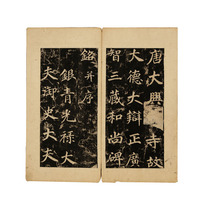 唐大興寺故
大德大辯正廣
智三藏和尚碑
銘并序
銀青光祿大
夫御史大夫